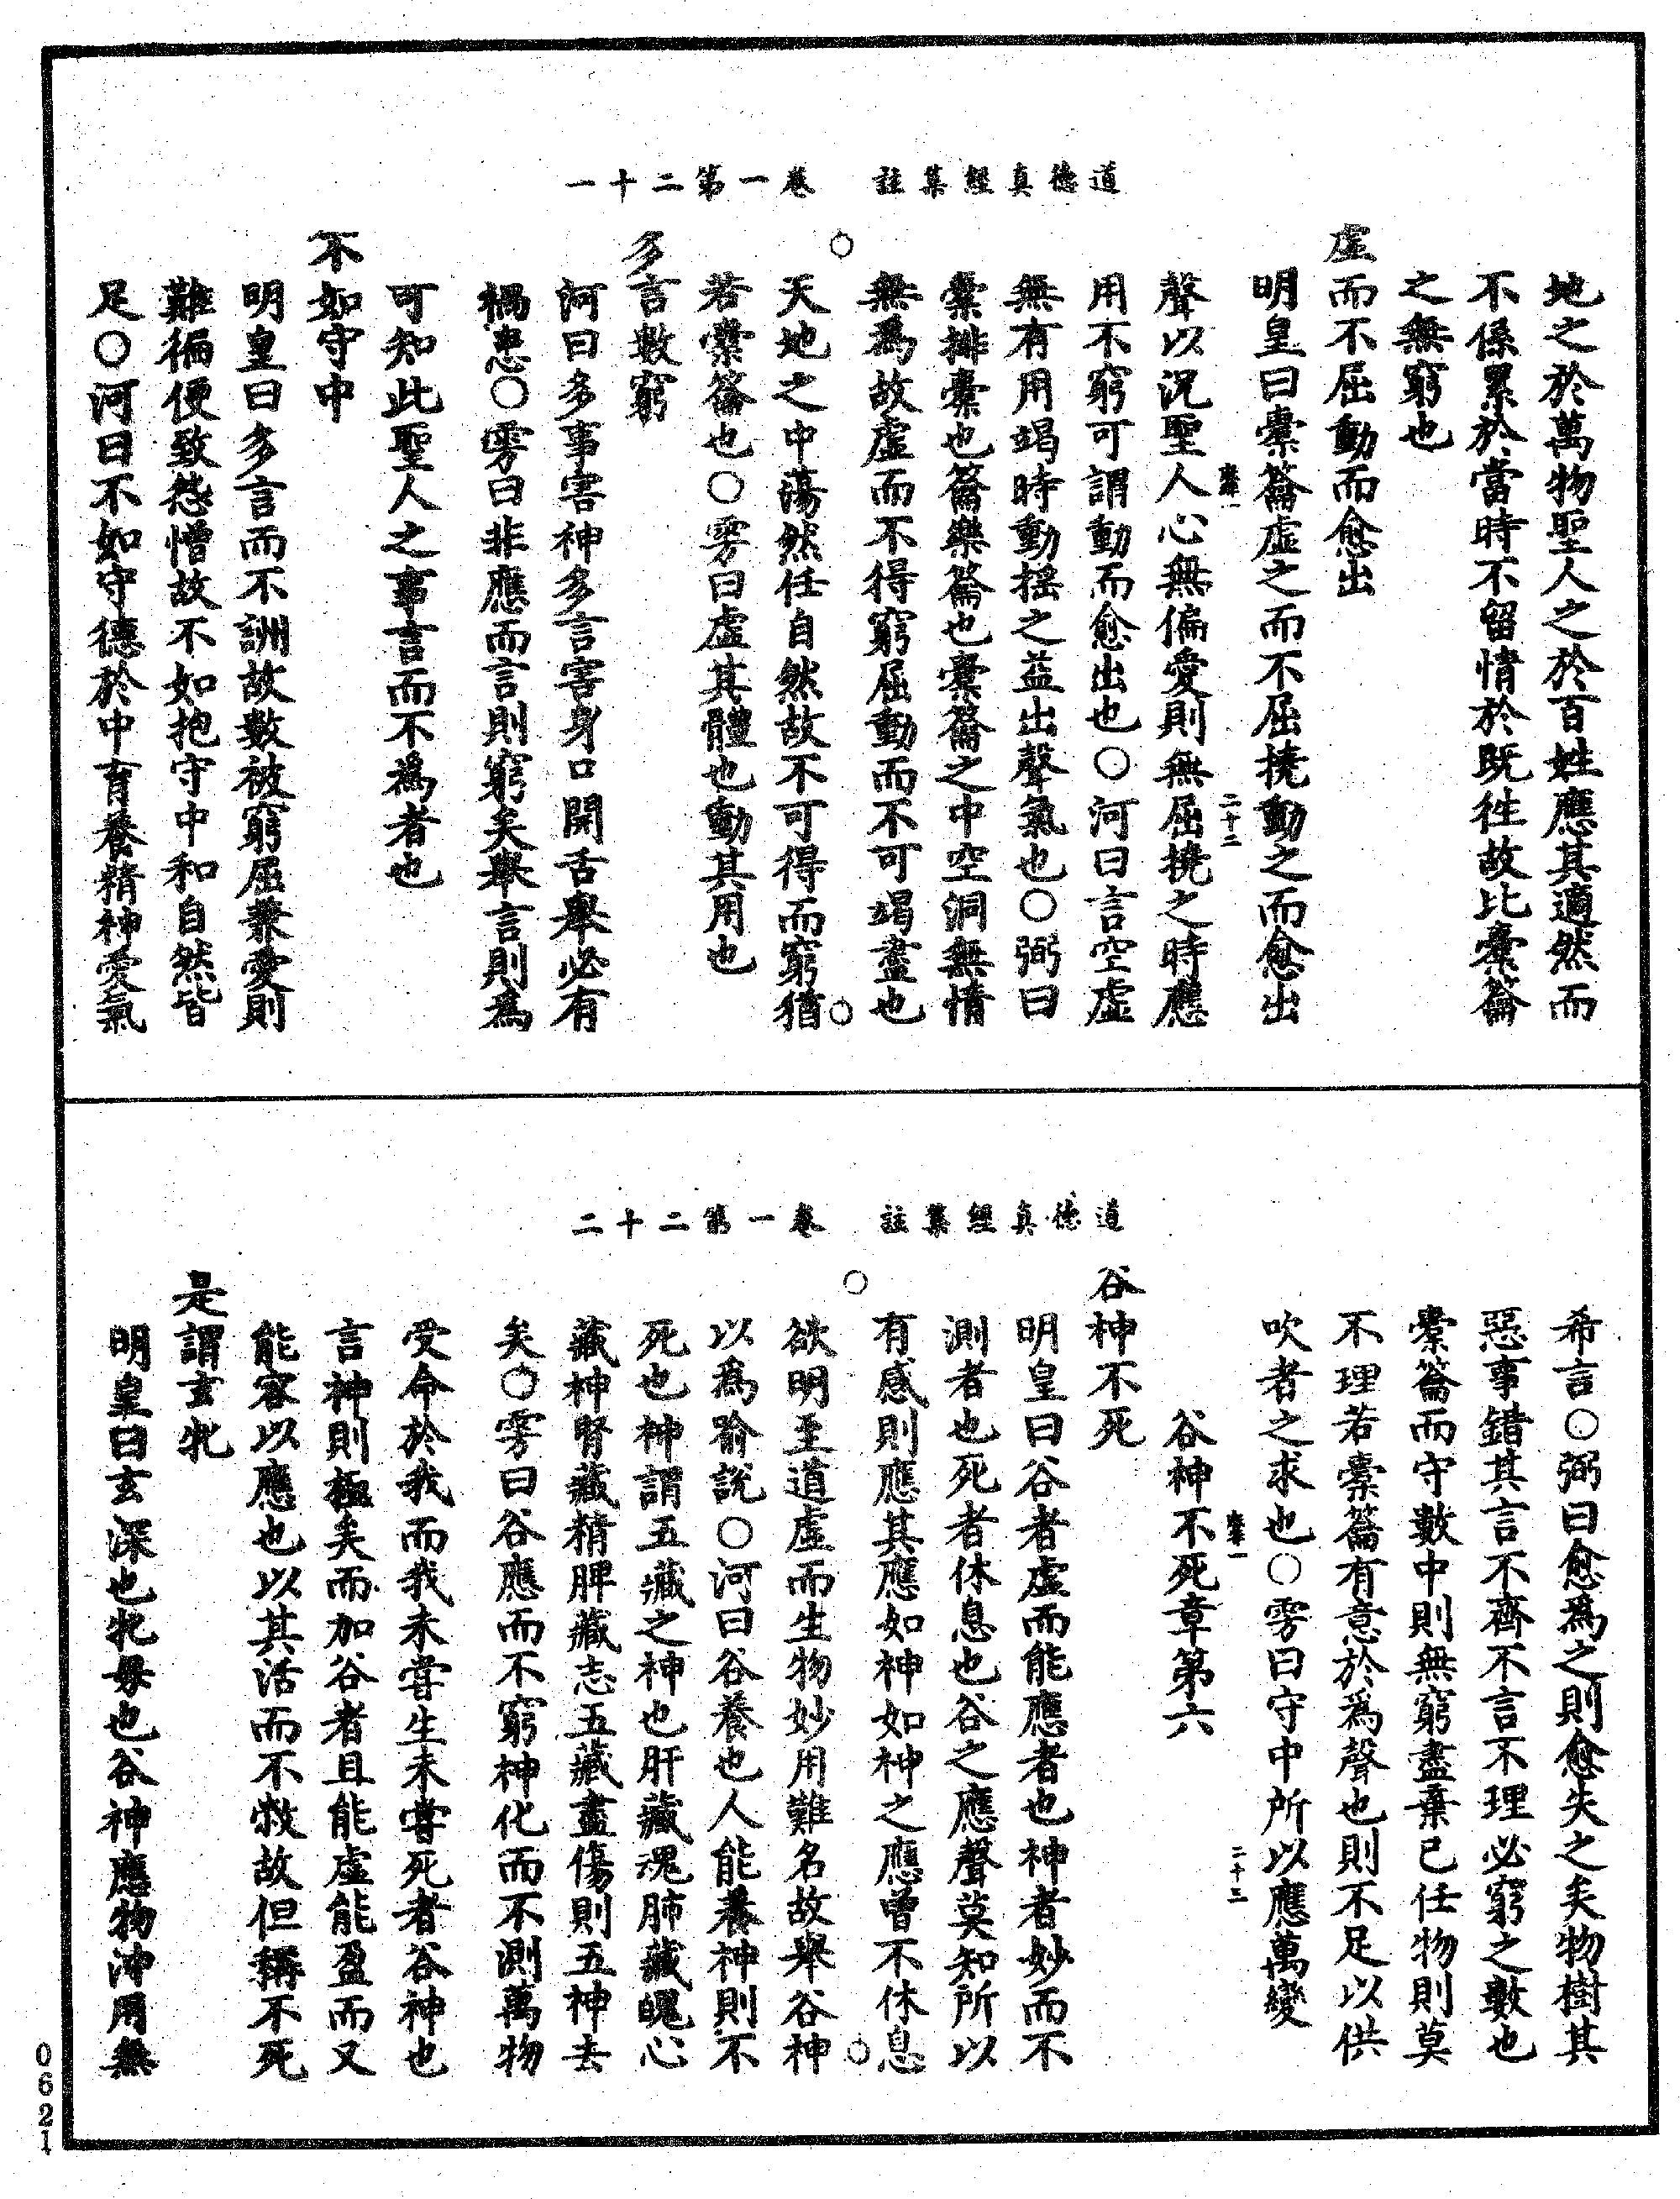 道德真經集註　卷一第二十一
地之於萬物聖人之於百姓應其適然而
不係累於當時不留情於既往故比橐籥
之無窮也
虛而不屈動而愈出
明皇曰橐籥虛之而不屈撓動之而愈出
二十二
聲以況聖人心無偏愛則無屈撓之時應
用不窮可謂動而愈出也○河曰言空虛
無有用竭時動搖之益出聲氣也○弼曰
橐排橐也籥樂籥也橐籥之中空洞無情
無為故虛而不得窮屈動而不可竭盡也
○　○
天地之中蕩然任自然故不可得而窮猶
若橐籥也○雱曰虛其體也動其用也
多言數窮
河曰多事害神多言害身口開舌舉必有
禍患○雱曰非應而言則窮矣舉言則為
可知此聖人之事言而不為者也
不如守中
明皇曰多言而不詶故數被窮屈兼愛則
難徧便致怨憎故不如抱守中和自然皆
足○河曰不如守德於中育養精神愛氣
道德真經集註　卷一第二十二
希言○弼曰愈為之則愈失之矣物樹其
惡事錯其言不齊不言不理必窮之數也
橐籥而守數中則無窮盡棄已任物則莫
不理若橐籥有意於為聲也則不足以供
吹者之求也○雱曰守中所以應萬變
二十三
谷神不死章第六
谷神不死
明皇曰谷者虛而能應者也神者妙而不
測者也死者休息也谷之應聲莫知所以
有感則應其應如神如神之應曾不休息
○　○
欲明至道虛而生物妙用難名故舉谷神
以為喻說○河曰谷養也人能養神則不
死也神謂五藏之神也肝藏魂肺藏魄心
藏神腎藏精脾藏志五藏盡傷則五神去
矣○雱曰谷應而不窮神化而不測萬物
受命於我而我未嘗生未嘗死者谷神也
言神則極矣而加谷者且能虛能盈而又
能容以應也以其活而不救故但稱不死
是謂玄牝
明皇曰玄深也牝母也谷神應物沖用無
0621